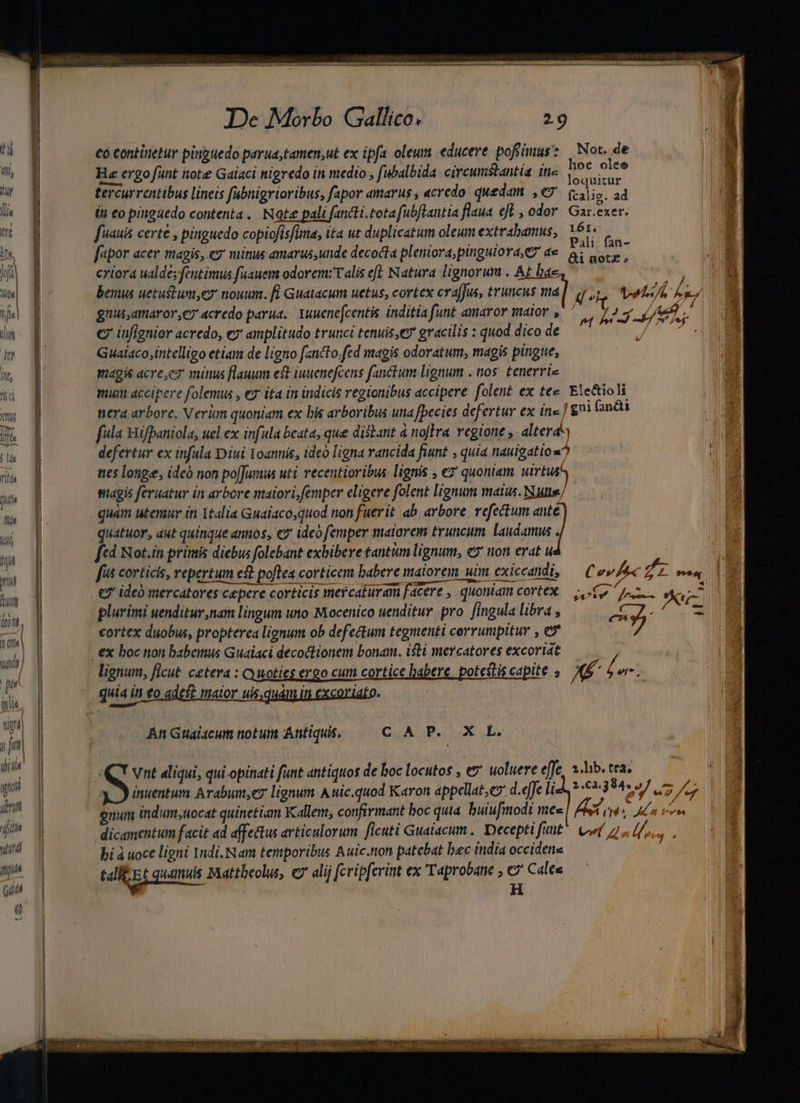 De Morbo Gallico. 29
eo continetur pinguedo parua,tamen,ut ex ipsa oleum educere possimus:
Hæ ergo sunt notæ Gaiaci nigredo in medio , subalbida circumstantia in-
tercurrentibus lineis subnigrioribus, sapor amarus , acredo quædam , &
in eo pinguedo contenta . Notæ pali sancti.tota substantia flaua est , odor
suauis certè , pinguedo copiosissima, ita ut duplicatum oleum extrahamus,
sapor acer magis, & minus amarus,unde decocta pleniora,pinguiora,& a-
criora ualde;sentimus suauem odorem:Talis est Natura lignorum . At ha-
bemus uetustum,& nouum. si Guaiacum uetus, cortex crassus, truncus ma
gnus,amaror,& acredo parua. Iuuenescentis inditia sunt amaror maior ,
& insignior acredo, & amplitudo trunci tenuis,& gracilis : quod dico de
Guaiaco,intelligo etiam de ligno sancto.sed magis odoratum, magis pingue,
magis acre,& minus flauum est iuuenescens sanctum lignum . nos tenerri-
mum accipere solemus , & ita in indicis regionibus accipere solent ex te-
nera arbore. Verùm quoniam ex his arboribus una species defertur ex in-
sula Hispaniola, uel ex insula beata, quæ distant à nostra regione , altera
defertur ex insula Diui Ioannis, ideò ligna rancida fiunt , quia nauigatio-
nes longæ, ideò non possumus uti recentioribus lignis , & quoniam uirtus
magis seruatur in arbore maiori,semper eligere solent lignum maius. Nunc
quàm utemur in Italia Guaiaco,quod non fuerit ab arbore resectum ante
quatuor, aut quinque annos, & ideò semper maiorem truncum laudamus .
sed Not.in primis diebus solebant exhibere tantùm lignum, & non erat u-
sus corticis, repertum est postea corticem habere maiorem uim exiccandi,
& ideò mercatores cœpere corticis mercaturam facere , quoniam cortex
plurimi uenditur,nam lingum uno Mocenico uenditur pro singula libra ,
cortex duobus, propterea lignum ob defectum tegmenti corrumpitur , &
ex hoc non habemus Guaiaci decoctionem bonam. isti mercatores excoriāt
lignum, sicut cætera : Quoties ergo cum cortice habere potestis capite ,
quia in eo adest maior uis,quàm in excoriato.
Not. de
hoc oleo
loquitur
scalig. ad
Gar.exer.
161.
Pali san-
cti notæ.
Electio li
gni sancti
An Guaiacum notum Antiquis. C A P. X L.
SVnt aliqui, qui opinati sunt antiquos de hoc locutos , & uoluere esse
inuentum Arabum,& lignum Auic.quod Karon appellat,& d.esse lig-
gnum indum,uocat quinetiam Kallem, confirmant hoc quia huiusmodi me-
dicamentum facit ad affectus articulorum sicuti Guaiacum . Decepti sunt
hi à uoce ligni Indi.Nam temporibus Auic.non patebat hæc india occiden-
talis.Et quamuis Mattheolus, & alij scripserint ex Taprobane , & Cale-
2.lib.tra.
2.ca.384.
H